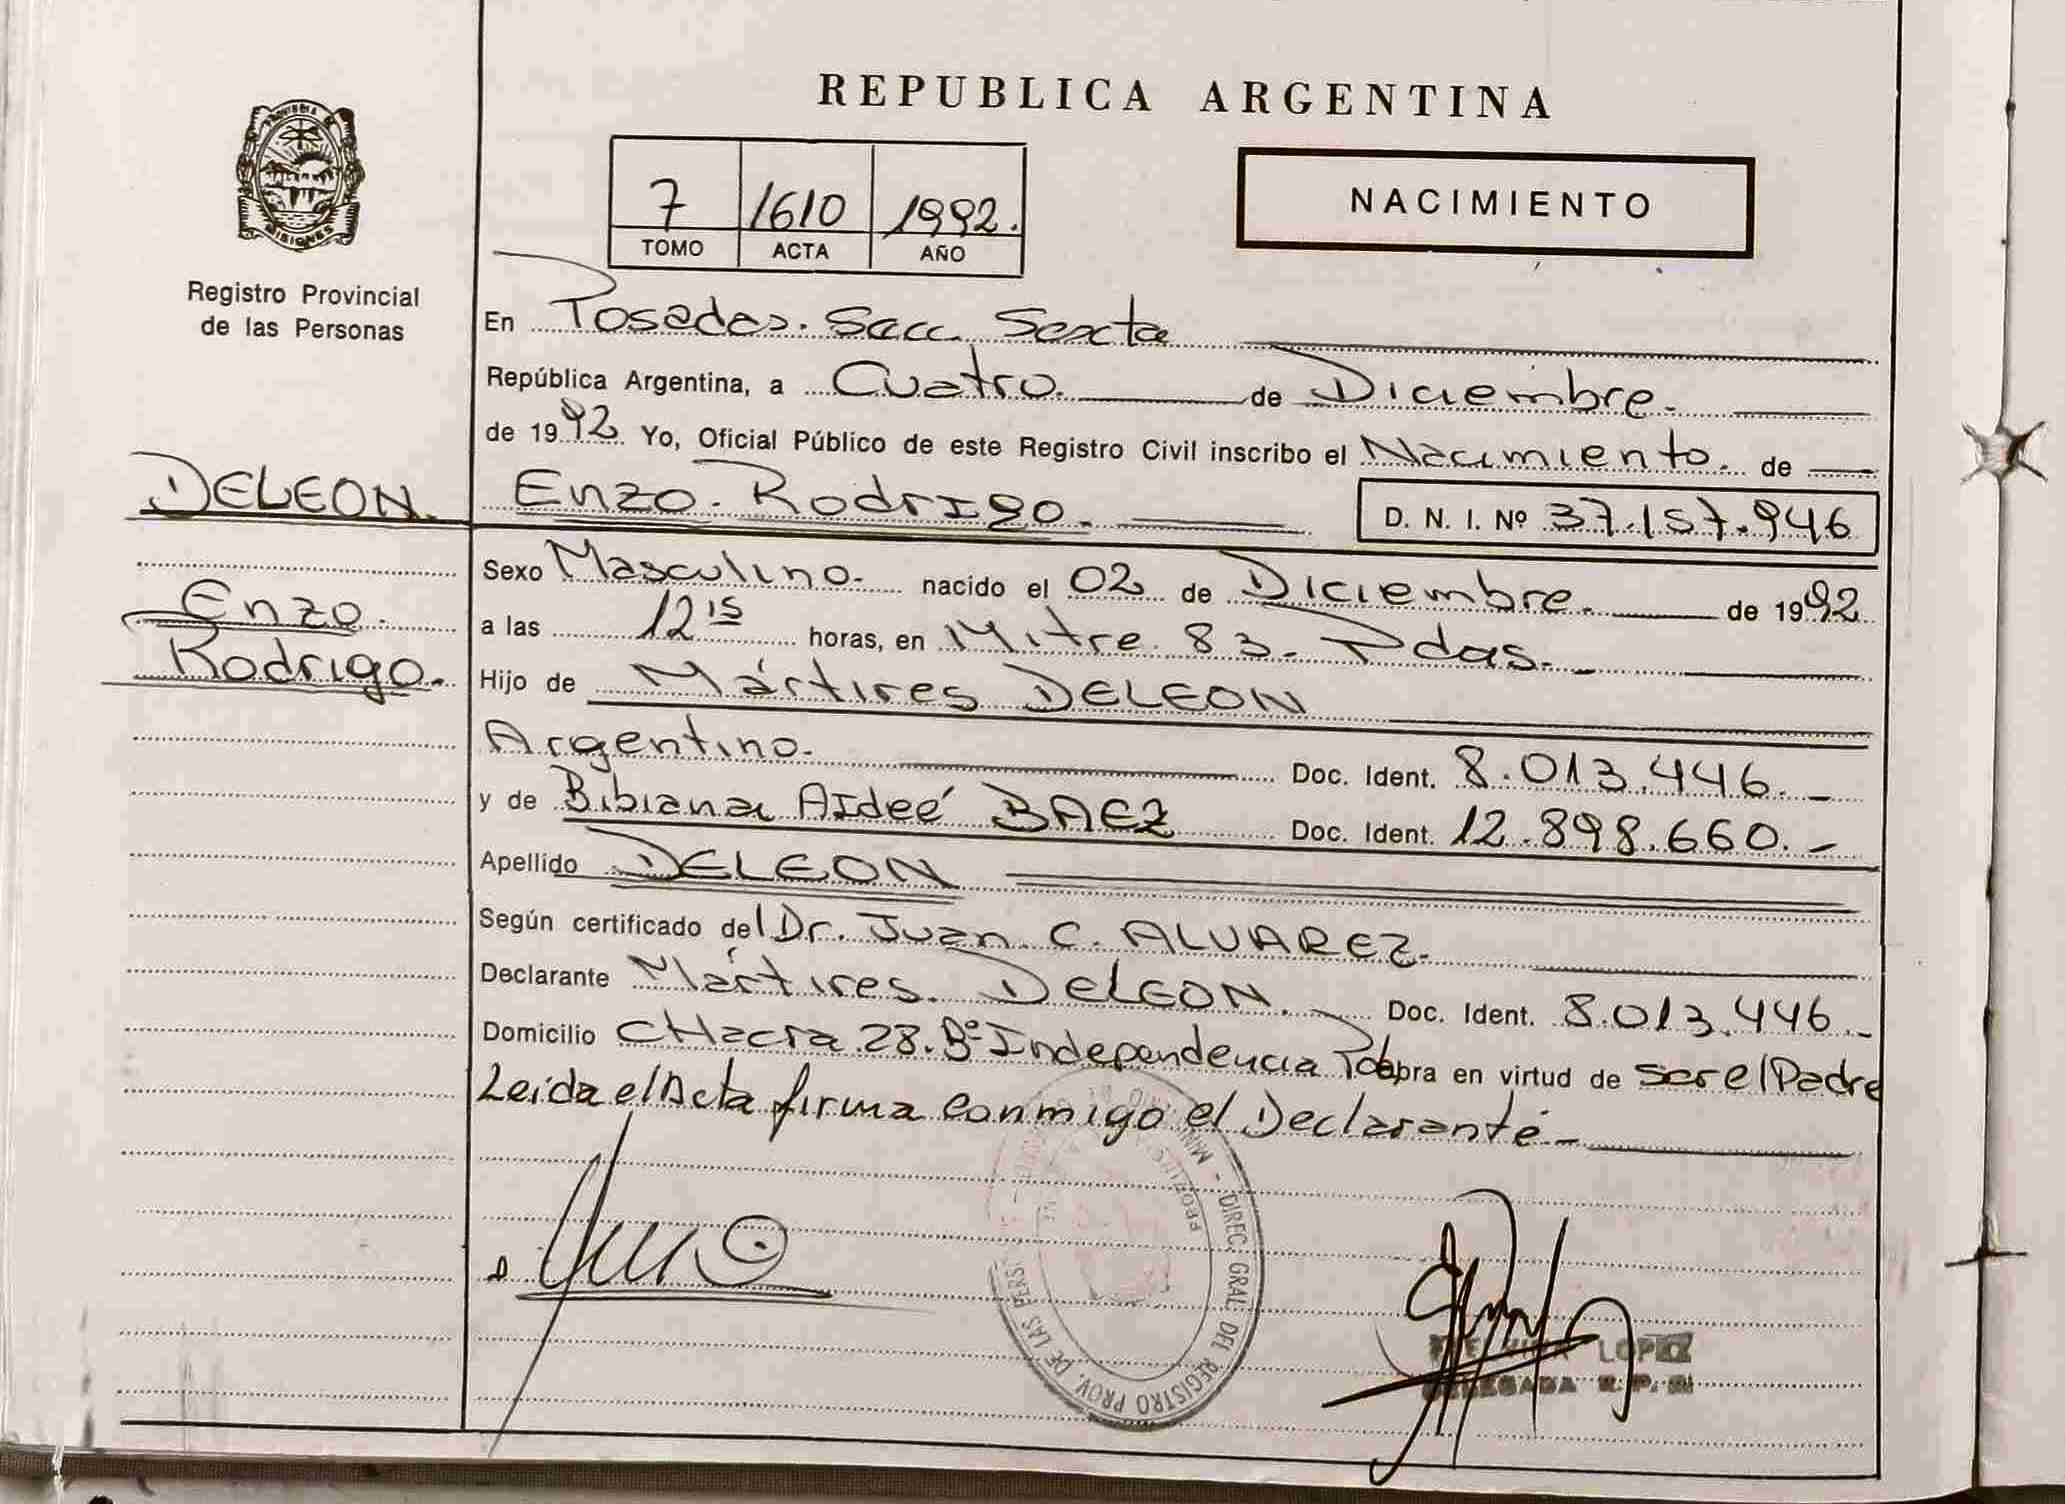 REPUBLICA ARGENTINA
PROVINCIA DE
MISIONES
Registro Provincial
de las Personas
7 1610 1992.
TOMO ACTA AÑO
NACIMIENTO
En Posadas. Secc. Sexta
República Argentina, a Cuatro. de Diciembre.
de 1992 Yo, Oficial Público de este Registro Civil inscribo el Nacimiento. de
DELEON. Enzo. Rodrigo. D. N. I. Nº 37.157.946
Sexo Masculino. nacido el 02 de Diciembre. de 1992
Enzo.
a las 12 15 horas, en Mitre 83. Pdas.
Rodrigo. Hijo de Mártires DELEON
Argentino. Doc. Ident. 8.013.446.
y de Bibiana AIdeé BAEZ Doc. Ident. 12.898.660.-
Apellido DELEON
Según certificado del Dr. Juan C. ALVAREZ.
Declarante Mártires. DELEON. Doc. Ident. 8.013.446.-
Domicilio CHacra 28. Bº Independencia obra en virtud de ser el Padre
Leída el Acta firma conmigo el Declarante-
DIREC. GRAL. DEL REGISTRO PROV. DE LAS PERS.
LOPEZ
DELEGADA R. P.